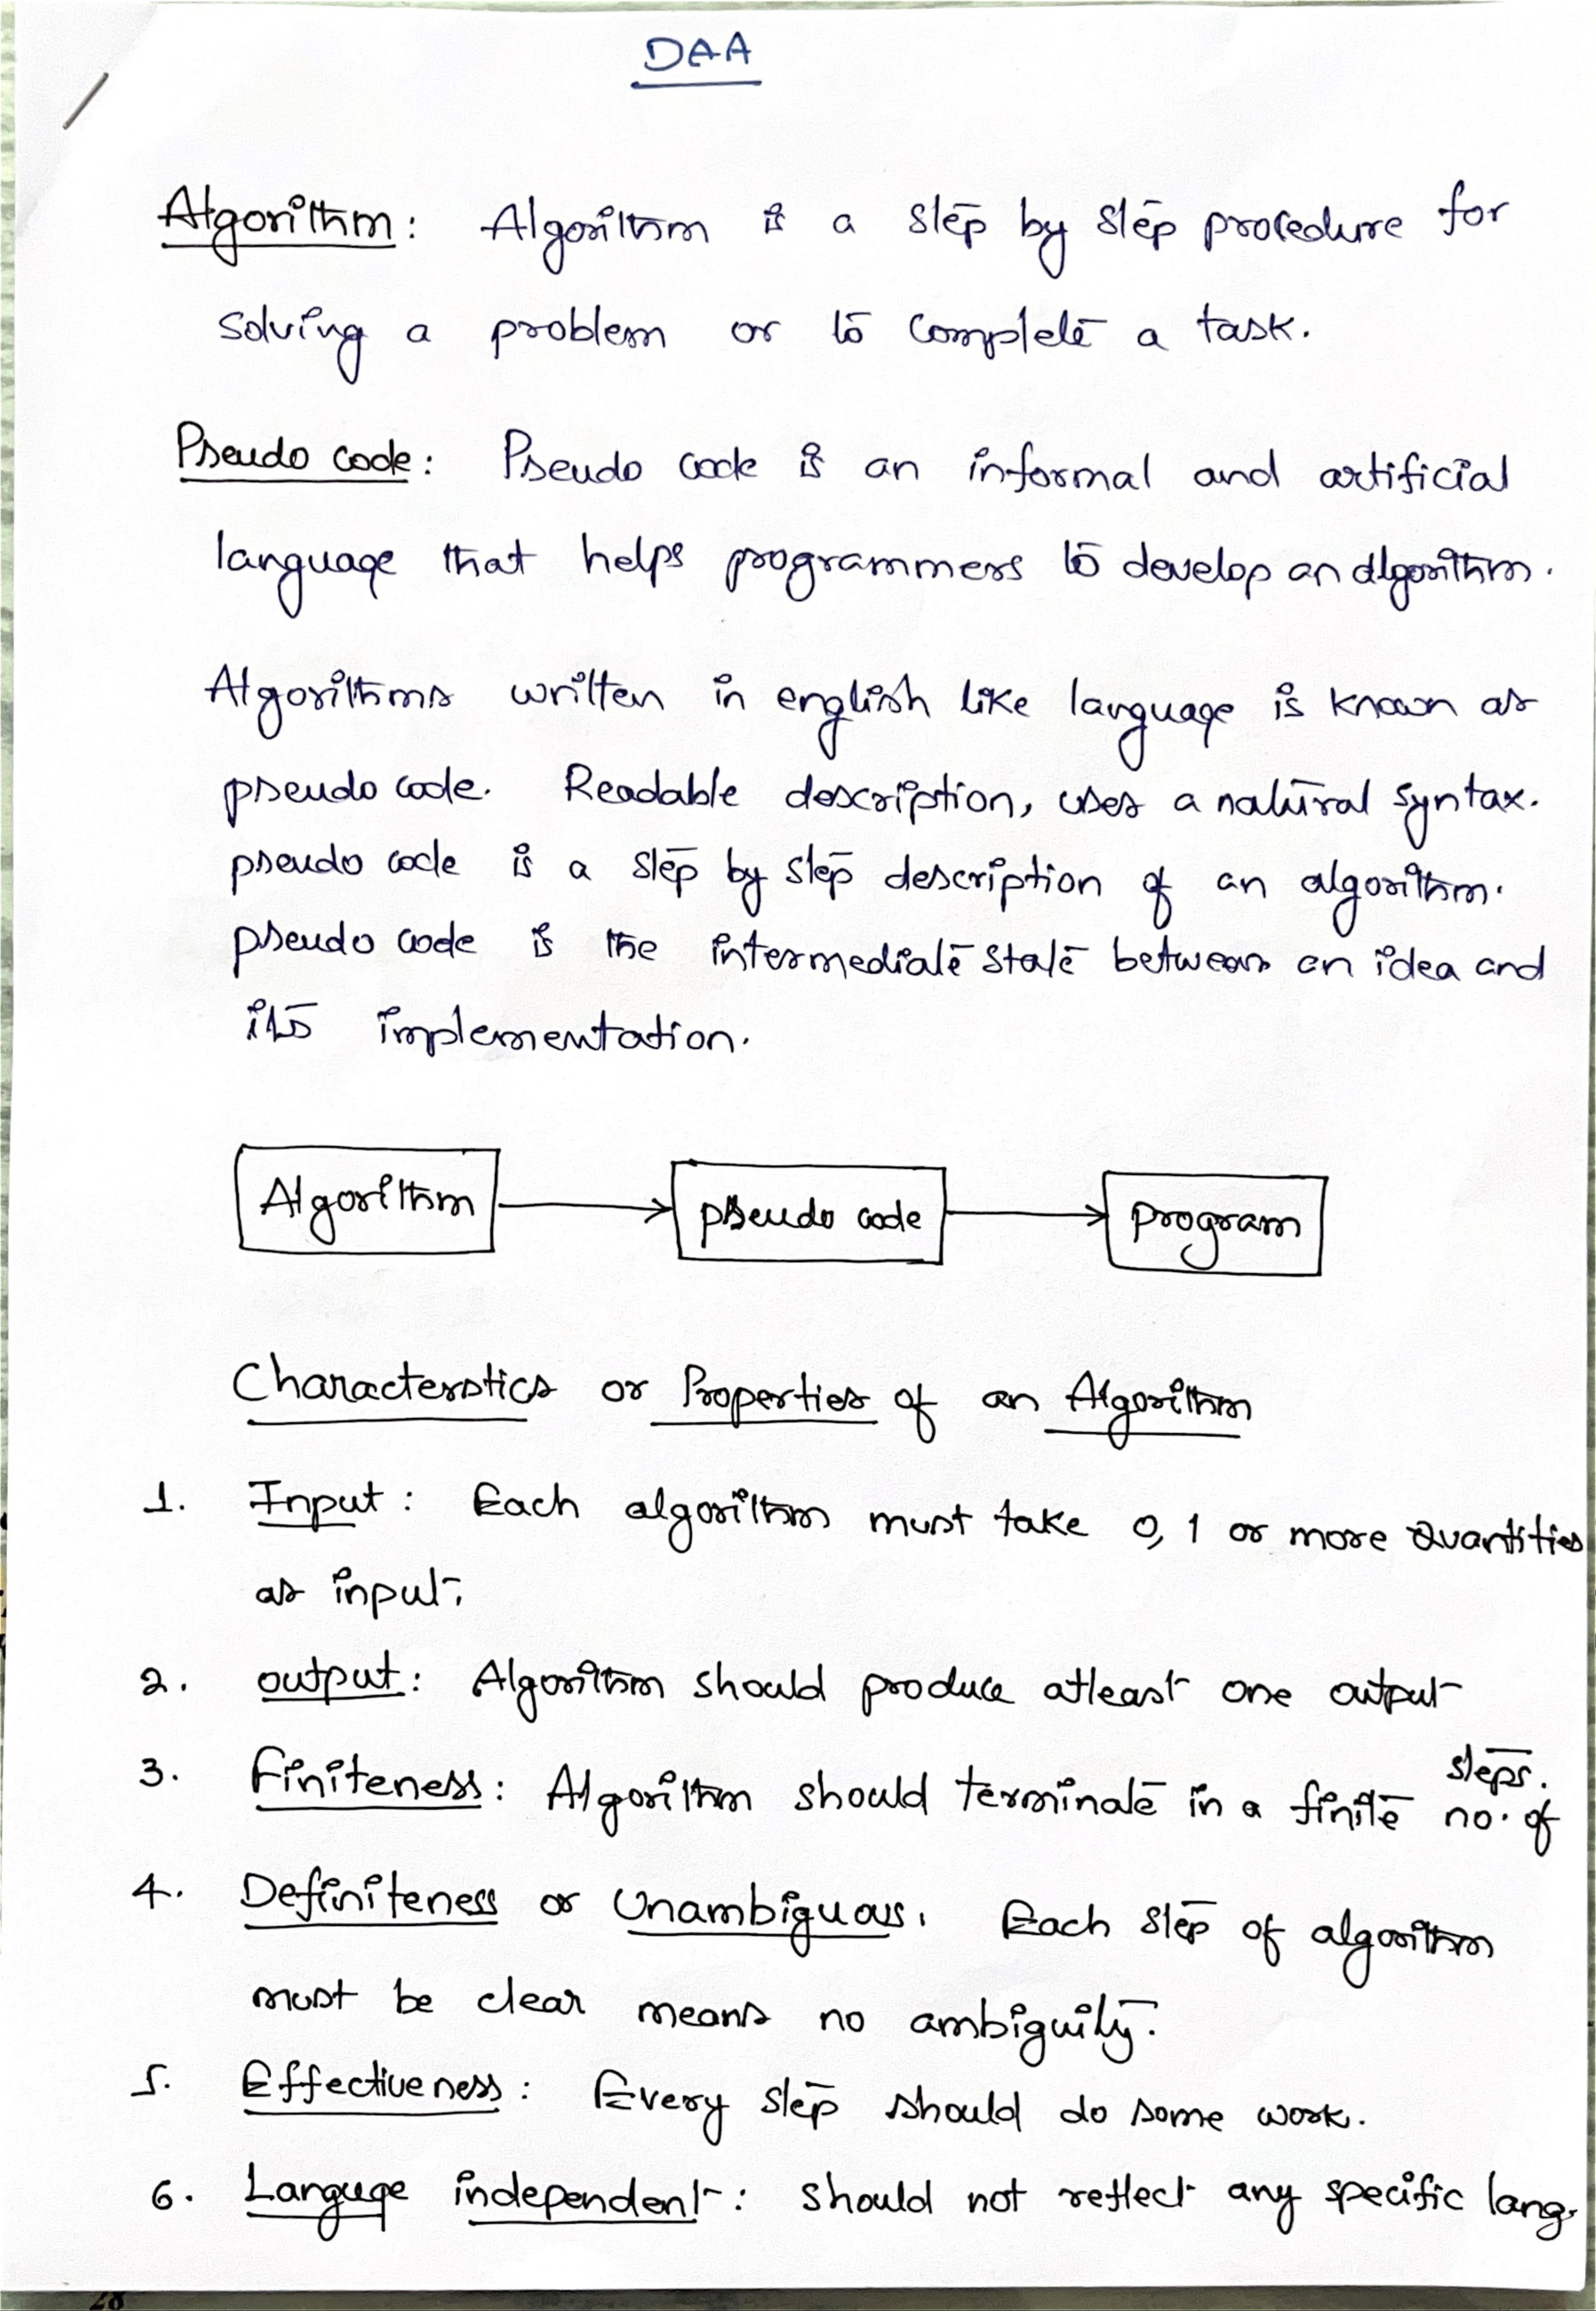 DAA
Algorithm: Algorithm is a step by step procedure for
solving a problem or to complete a task.
Pseudo code: Pseudo code is an informal and artificial
language that helps programmers to develop an algorithm.
Algorithms written in english like language is known as
pseudo code. Readable description, uses a natural syntax.
pseudo code is a step by step description of an algorithm.
pseudo code is the intermediate state between an idea and
its implementation.
Algorithm pseudo code program
Characterstics or Properties of an Algorithm
1. Input: Each algorithm must take 0, 1 or more Quantities
as input.
2. output: Algorithm should produce atleast one output
3. Finiteness: Algorithm should terminate in a finite no. of
steps.
4. Definiteness or Unambiguous. Each step of algorithm
must be clear means no ambiguity.
5. Effectiveness: Every step should do some work.
6. Languge independent: should not reflect any specific lang.
28